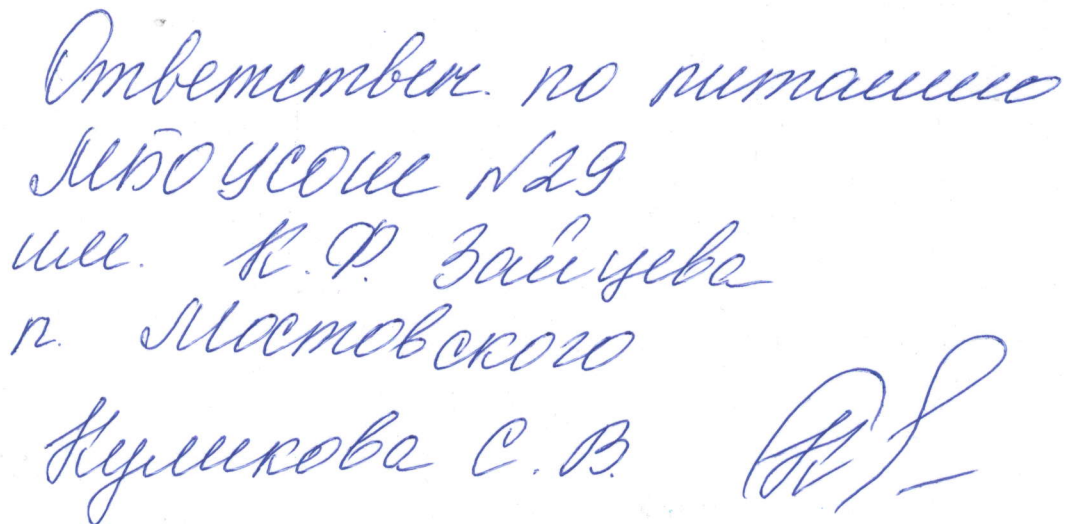 Ответствен. по питанию
МБОУСОШ №29
им. К.Ф. Зайцева
п. Мостовского
Куликова С. В.